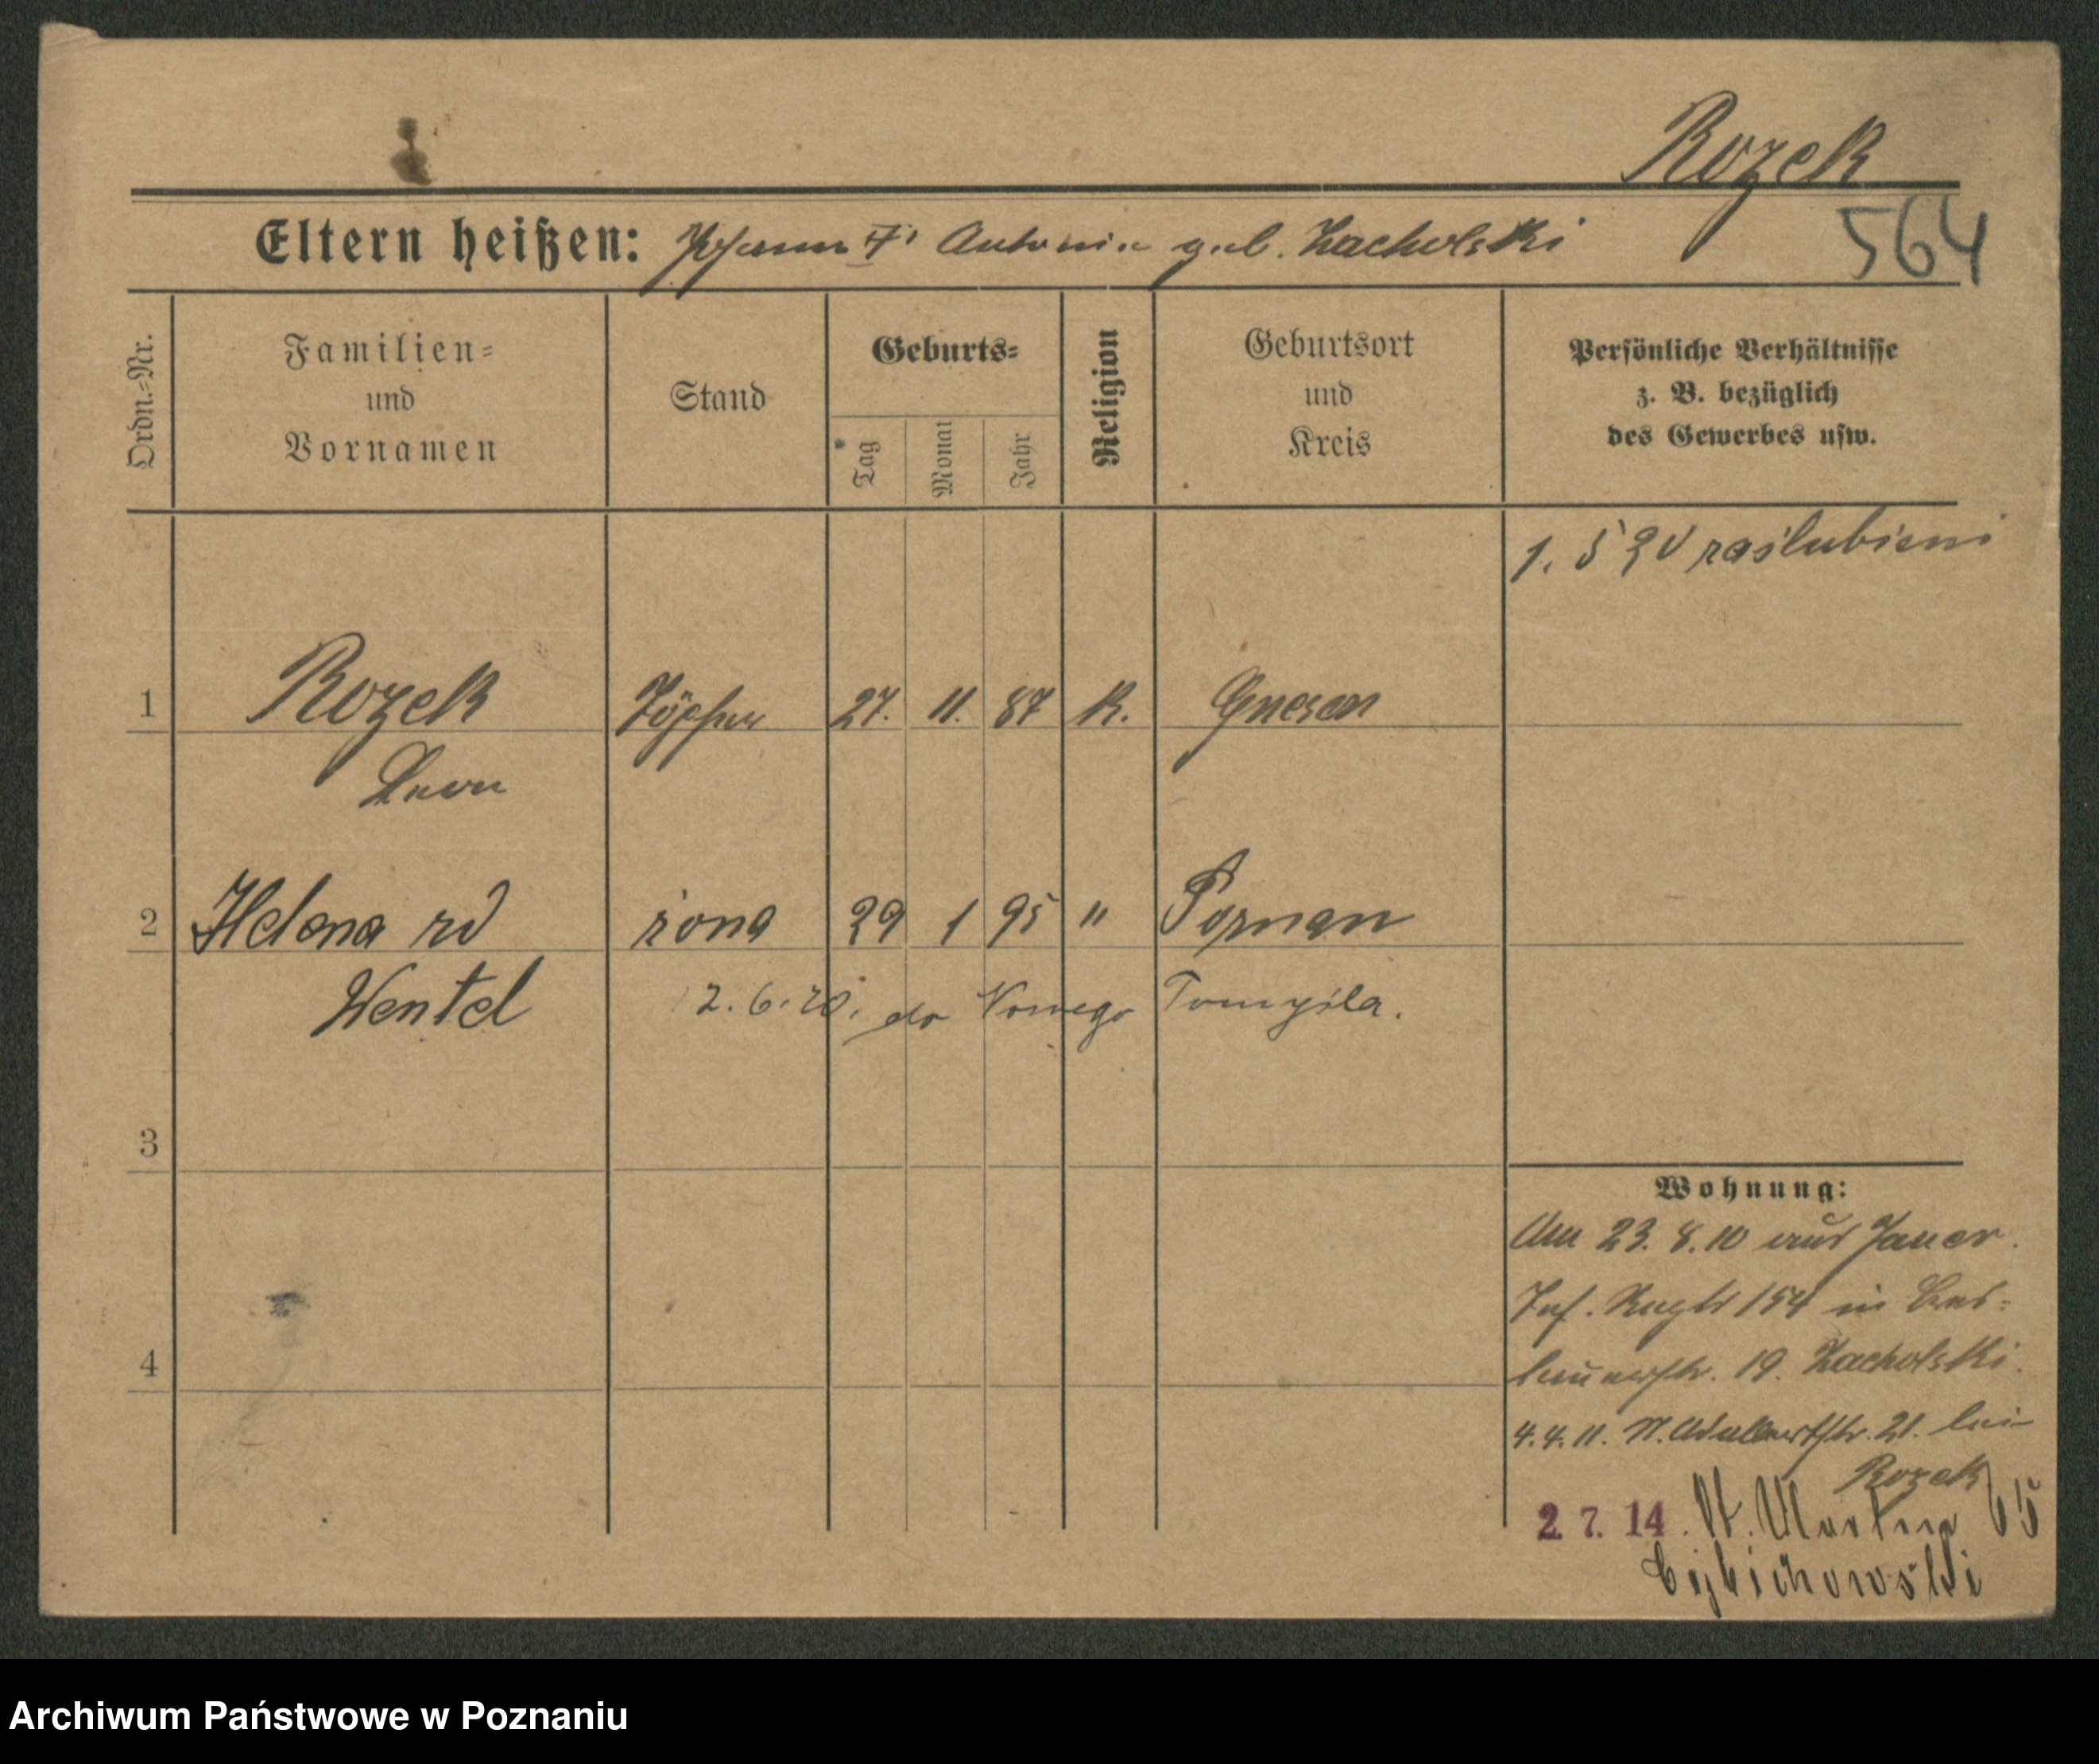 Rozek
564
Eltern heißen: Johann † Antonie geb. Zacholski
Ordn.-Nr.
Familien-
und
Vornamen
Stand
Geburts-
Tag
Monat
Jahr
Religion
Geburtsort
und
Kreis
Persönliche Verhältnisse
z. B. bezüglich
des Gewerbes usw.
1. 5 20 zaślubieni
1 Rozek Töpfer 27. 11. 87 K. Gnesen
Leon
2 Helena zd żona 29 1 95 " Poznan
Wentel 2.6.20. do Nowego Tomyśla.
3
4
Wohnung:
Am 23. 8. 10 aus Jauer.
Inf. Regts 154 in Bres-
lauerstr. 19. Zacholski.
4.4.11. St. Adalbertstr. 21. bei
Rozek
2. 7. 14. St. Martin 65
Archiwum Państwowe w Poznaniu